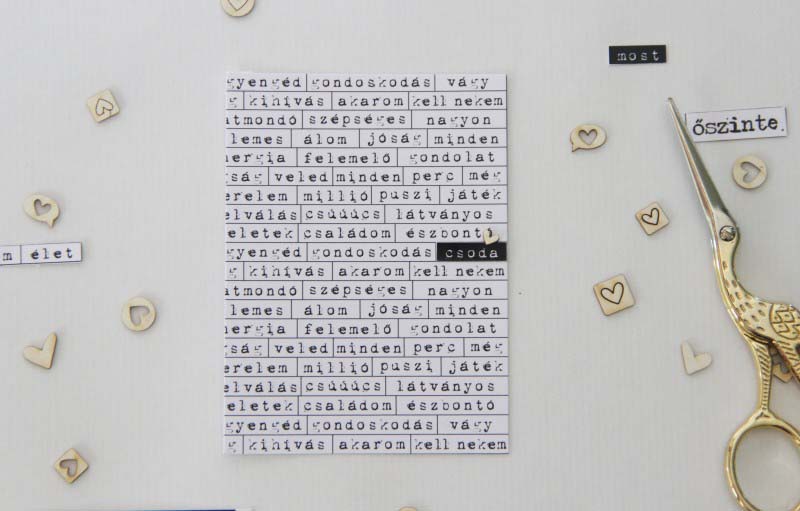 most
őszinte.
m élet
gyengéd gondoskodás vágy
g kihívás akarom kell nekem
atmondó szépséges nagyon
lemes álom jóság minden
nergia felemelő gondolat
ság veled minden perc még
erelem millió puszi játék
elválás csúúúcs látványos
eletek családom észbontó
gyengéd gondoskodás csoda
g kihívás akarom kell nekem
atmondó szépséges nagyon
lemes álom jóság minden
nergia felemelő gondolat
ság veled minden perc még
erelem millió puszi játék
elválás csúúúcs látványos
eletek családom észbontó
gyengéd gondoskodás vágy
g kihívás akarom kell nekem